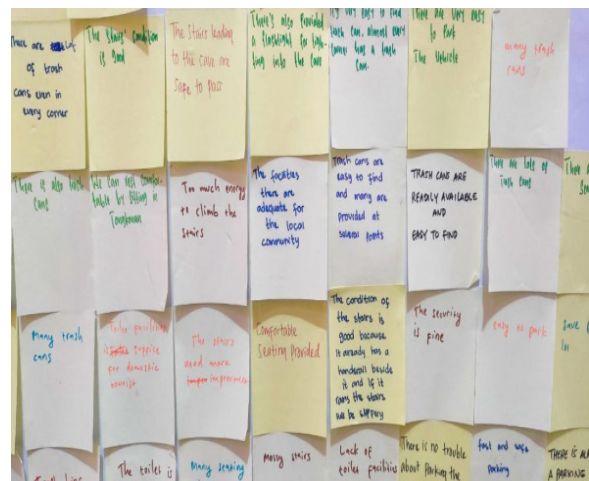 There are lot
of trash
cans even in
every corner
The Stairs' Condition
is good
The Stairs leading
to the cave are
Safe to pass
There's also Provided
a flashlight for
into the Cave
very easy to find
trash can. almost every
corner has a trash
Can.
There are very easy
to Park
The Vehicle
many trash
cans
There is also trash
Cans
We can rest comfor-
table by sitting in
Too much energy
to climb the
stairs
The facilities
there are
adequate for
the local
community
Trash cans are
easy to find
and many are
provided at
several points
TRASH CANS ARE
READILY AVAILABLE
AND
EASY TO FIND
There are lots of
Trash Cans
There a
Many trash
cans
Toilet facilities
is suffice
for domestic
tourist
The stairs
need more
improvement
Comfortable
Seating Provided
The condition of
the stairs is
good because
it already has a
handrail beside
it and if it
rains the stairs
will be slippery
The security
is fine
easy to park
Save p
lot
The toilet is
Many seating
mossy stairs
Lack of
toilet facilities
There is no trouble
about Parking the
fast and safe
parking
THERE IS AL
A PARKING